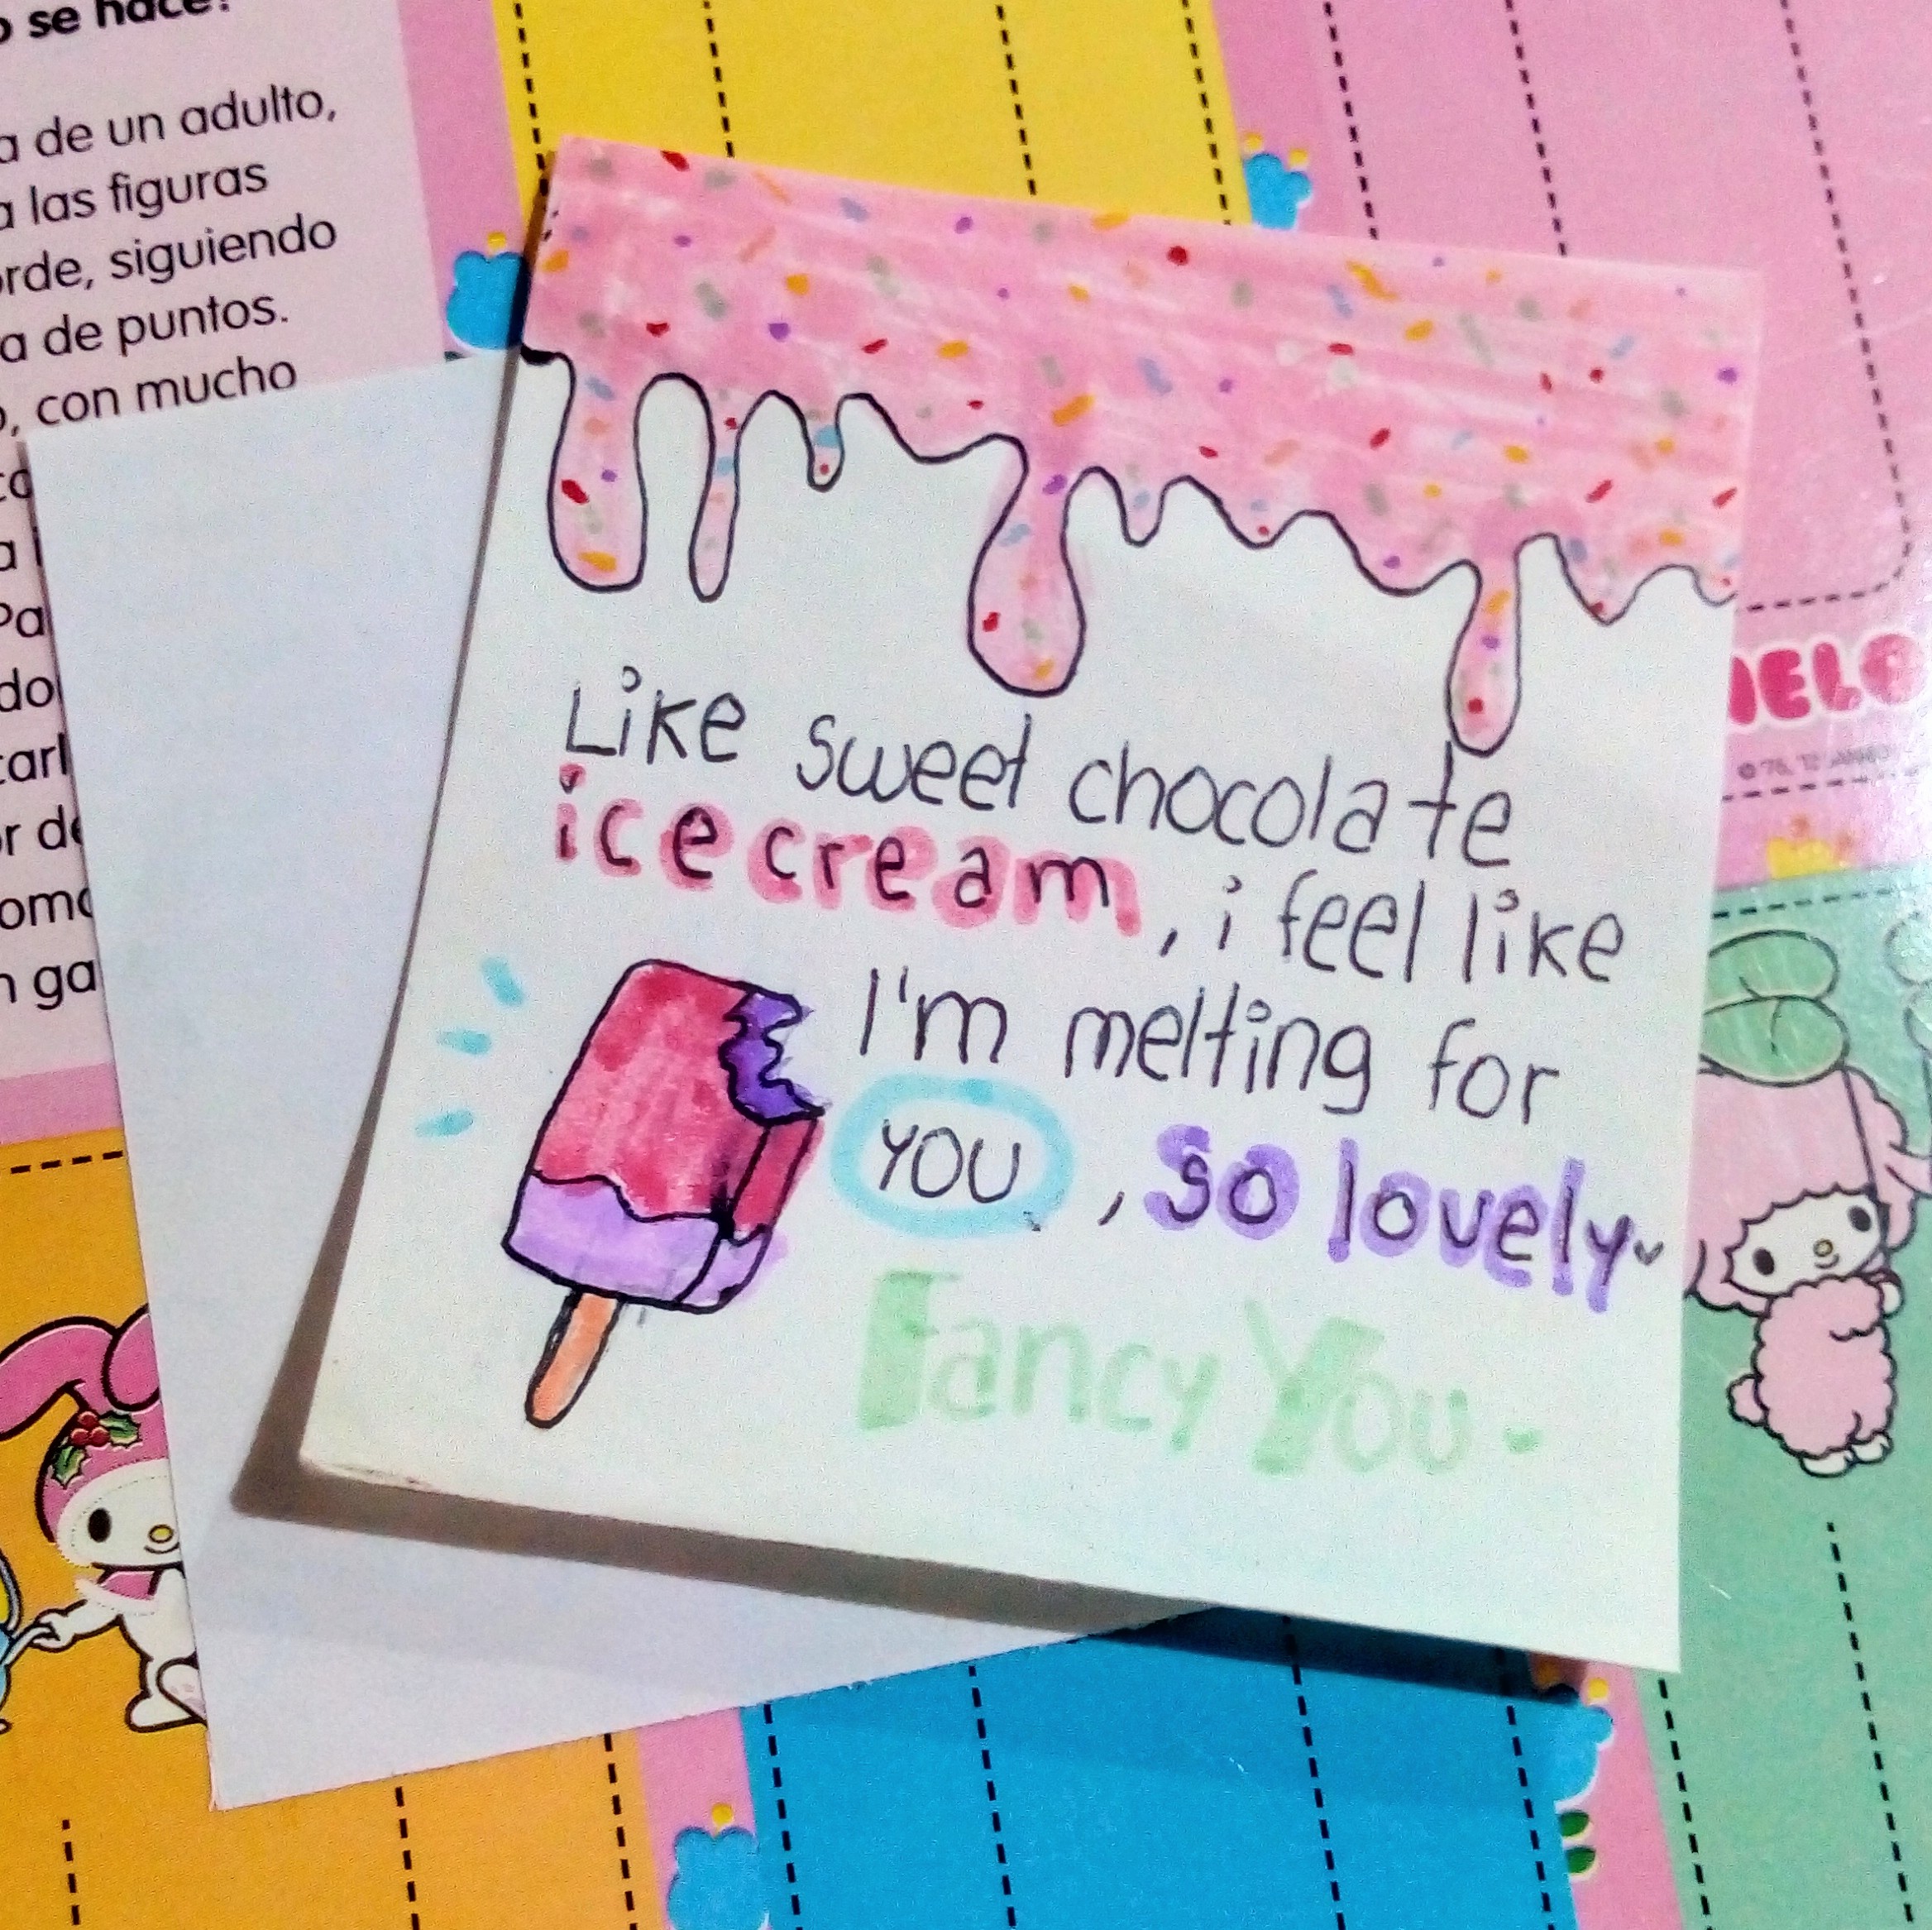 se hace?
a de un adulto,
a las figuras
orde, siguiendo
a de puntos.
, con mucho
Like sweet chocolate
ice cream, i feel like
I'm melting for
YOU, so lovely
Fancy You